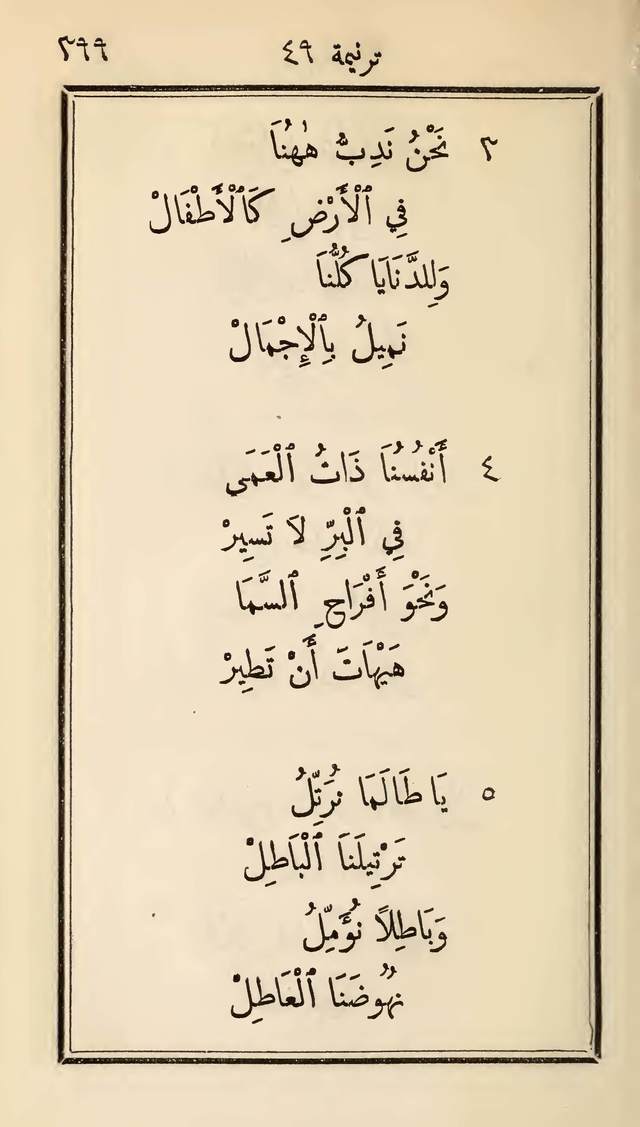 ترنيمة ٤٩ ٣٩٩
٣ نَحْنُ نَدِبُّ هٰهُنَا
فِي ٱلْأَرْضِ كَٱلْأَطْفَالْ
وَلِلدَّنَايَا كُلُّنَا
نَمِيلُ بِٱلْإِجْمَالْ
٤ أَنْفُسُنَا ذَاتُ ٱلْعَمَى
فِي ٱلْبِرِّ لَا تَسِيرْ
وَنَحْوَ أَفْرَاحِ ٱلسَّمَا
هَيْهَاتَ أَنْ تَطِيرْ
٥ يَا طَالَمَا نُرَتِّلُ
تَرْتِيلَنَا ٱلْبَاطِلْ
وَبَاطِلًا نُؤَمِّلُ
نُهُوضَنَا ٱلْعَاطِلْ